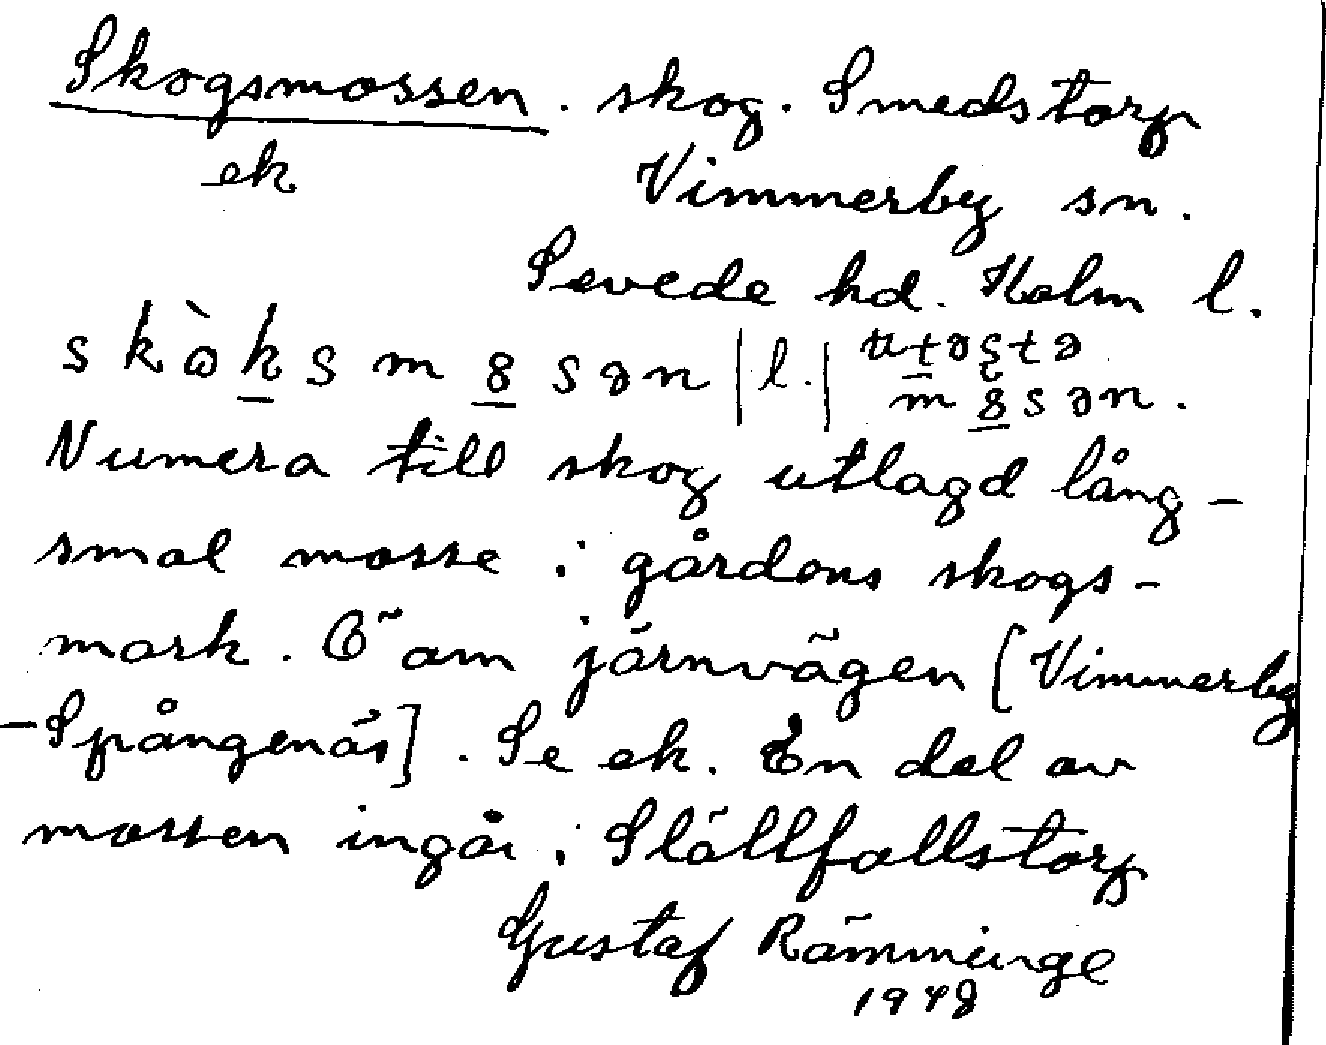 Skogsmossen. skog. Smedstorp
ek Vimmerby sn.
Sevede hd. Kalm l.
skòksm8sən | l. |
m8sən.
Numera till skog utlagd lång-
smal mosse i gårdens skogs-
mark. Ö om järnvägen [Vimmerby
-Spångenäs]. Se ek. En del av
mossen ingår i Slällfallstorp
Gustaf Rämminge
1948